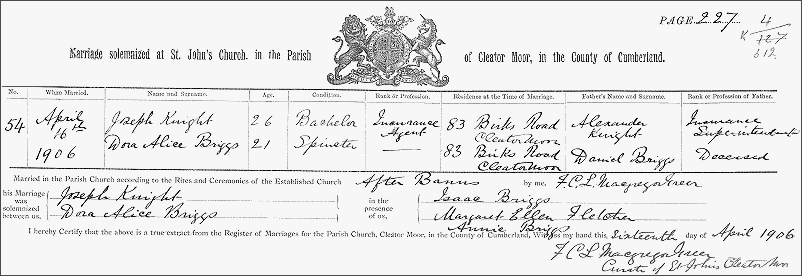 PAGE. 227
4
127
612
Marriage solemnized at St. John's Church. in the Parish of Cleator Moor, in the County of Cumberland.
No. When Married. Name and Surname. Age. Condition. Rank or Profession. Residence at the Time of Marriage. Father's Name and Surname. Rank or Profession of Father.
54 April 16th 1906 Joseph Knight 26 Bachelor Insurance Agent 83 Birks Road Cleator Moor Alexander Knight Insurance Superintendent
Dora Alice Briggs 21 Spinster — 83 Birks Road Cleator Moor Daniel Briggs Deceased
Married in the Parish Church according to the Rites and Ceremonies of the Established Church After Banns by me, F.C.L. Macgregor Greer
his Marriage was solemnized between us, Joseph Knight Dora Alice Briggs in the presence of us, Isaac Briggs Margaret Ellen Fletcher Annie Briggs
I hereby Certify that the above is a true extract from the Register of Marriages for the Parish Church, Cleator Moor, in the County of Cumberland, Witness my hand this Sixteenth day of April 1906
F.C.L. Macgregor Greer
Curate of St Johns Cleator Moor